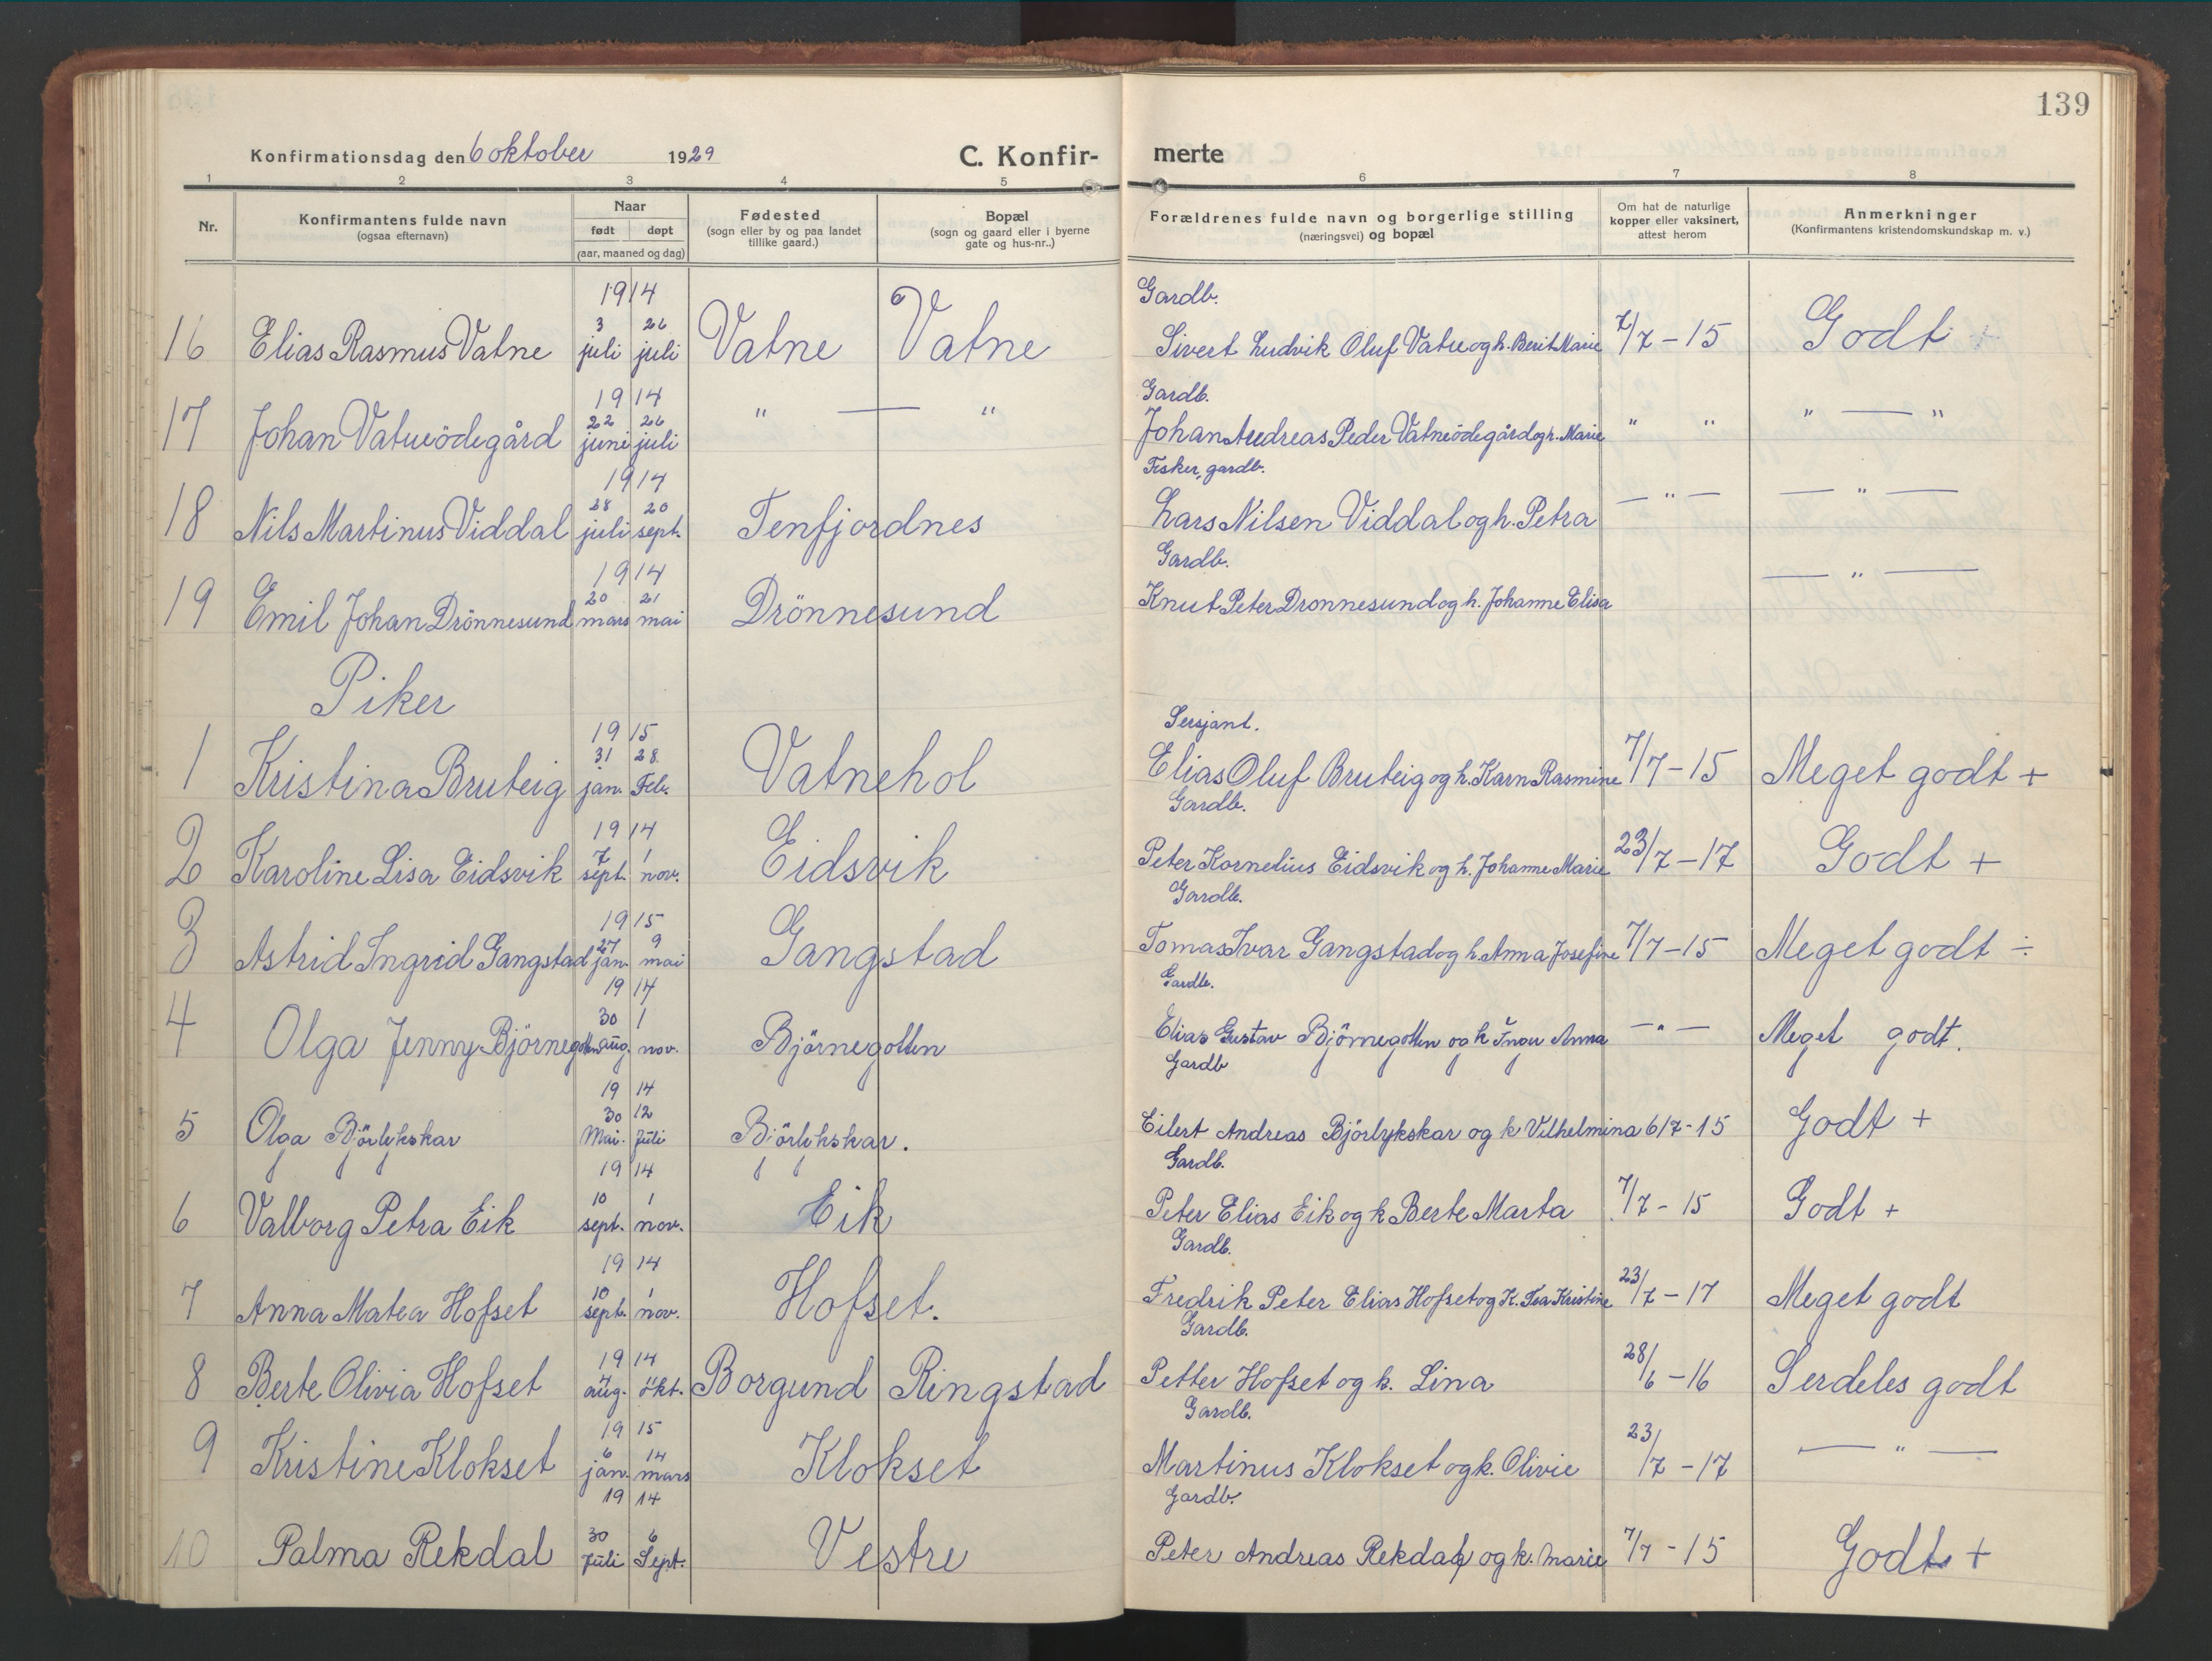 139
Konfirmationsdag den 6 oktober 1929
C. Konfir-
merte
1 2 3 4 5 6 7 8
Nr.
Konfirmantens fulde navn
(ogsaa efternavn)
Naar
født døpt
(aar, maaned og dag)
Fødested
(sogn eller by og paa landet
tillike gaard.)
Bopæl
(sogn og gaard eller i byerne
gate og hus-nr..)
Forældrenes fulde navn og borgerlige stilling
(næringsvei) og bopæl
Om hat de naturlige
kopper eller vaksinert,
attest herom
Anmerkninger
(Konfirmantens kristendomskundskap m. v.)
1914 Gardb.
16 Elias Rasmus Vatne 3 juli 26 juli Vatne Vatne Sivert Ludvik Oluf Vatne og h. Berit Marie 7/7-15 Godt +
1914 Gardb.
17 Johan Vatneödegård 22 juni 26 juli " — " Johan Andreas Peder Vatneödegård og h. Marie " " " — "
1914 Fisker, gardb.
18 Nils Martinus Viddal 28 juli 20 sept. Tenfjordnes Lars Nilsen Viddal og h. Petra — " — — " —
1914 Gardb.
19 Emil Johan Drönnesund 20 mars 21 mai Drönnesund Knut Peter Dronnesund og h. Johanne Elisa — " —
Piker
1915 Sersjant.
1 Kristina Bruteig 31 jan. 28. Feb. Vatnehol Elias Oluf Bruteig og h. Karn Rasmine 7/7-15 Meget godt +
1914 Gardb.
2 Karoline Lisa Eidsvik 7 sept. 1 nov. Eidsvik Peter Kornelius Eidsvik og h. Johanne Marie 23/7-17 Godt +
1915 Gardb.
3 Astrid Ingrid Gangstad 27 jan. 9 mai Gangstad Tomas Ivar Gangstad og h. Anna Josefine 7/7-15 Meget godt ÷
1914 Gardb.
4 Olga Jenny Björnegotten 30 aug. 1 nov. Björnegotten Elias Gustav Björnegotten og k Anna — " — Meget godt.
1914 Gardb
5 Olga Björlykskar 30 Mai. 12 Juli Björlykskar. Eilert Andreas Björlykskar og k Vilhelmina 6/7-15 Godt +
1914 Gardb.
6 Valborg Petra Eik 10 sept. 1 nov. Eik Peter Elias Eik og k Berte Marta 7/7-15 Godt +
1914 Gardb.
7 Anna Matea Hofset 10 sept. 1 nov. Hofset. Fredrik Peter Elias Hofset og K. Tea Kristine 23/7-17 Meget godt
1914 Gardb.
8 Berte Olivia Hofset aug. okt. Borgund Ringstad Petter Hofset og k. Lina 28/6-16 Serdeles godt
1915 Gardb.
9 Kristine Klokset 6 jan. 14 mars Klokset Martinus Klokset og k. Olivie 23/7-17 — " —
1914 Gardb.
10 Palma Rekdal 30 Juli 6 Sept. Vestre Peter Andreas Rekdal og k. Marie 7/7-15 Godt +